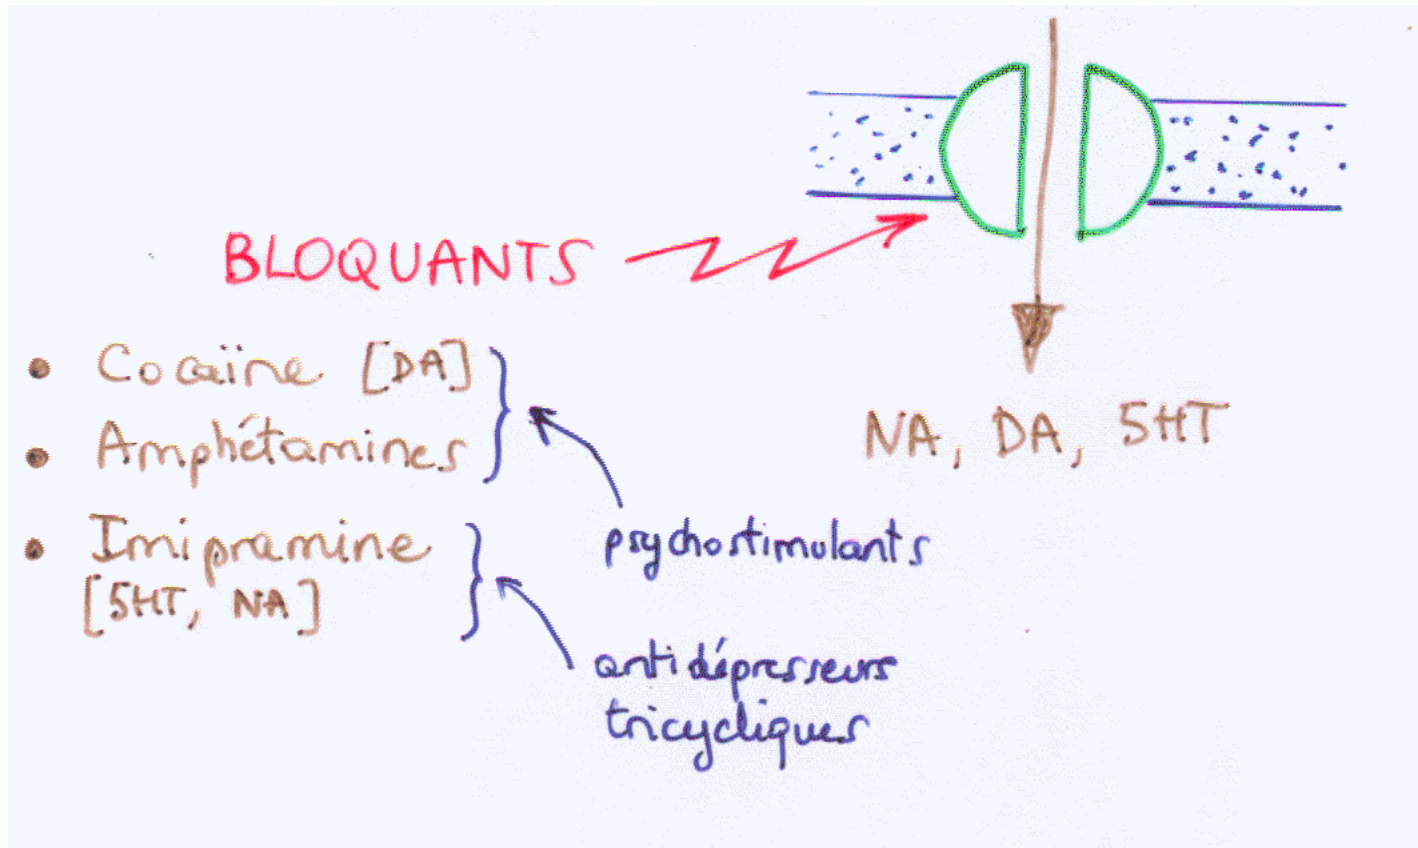 BLOQUANTS
• Cocaïne [DA]
• Amphétamines
psychostimulants
• Imipramine
[5HT, NA]
antidépresseurs
tricycliques
NA, DA, 5HT